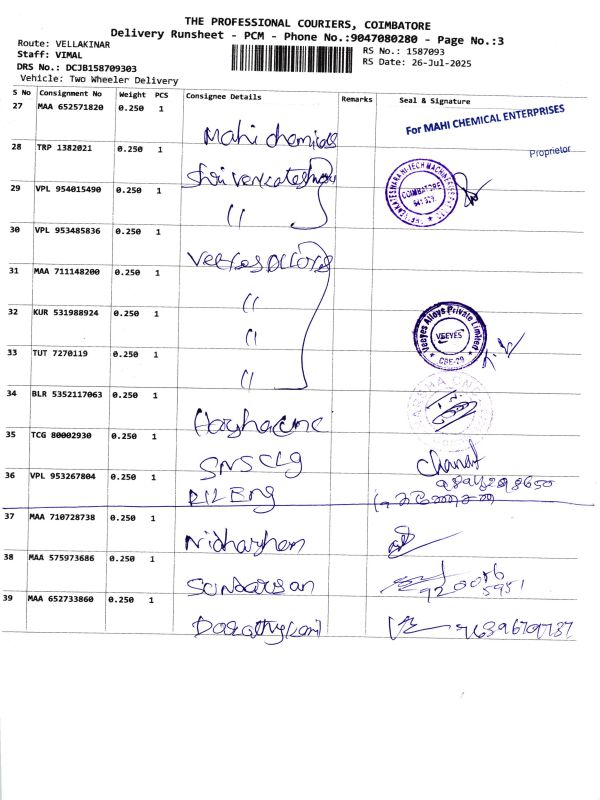 THE PROFESSIONAL COURIERS, COIMBATORE
Delivery Runsheet - PCM - Phone No.:9047080280 - Page No.:3
Route: VELLAKINAR
RS No.: 1587093
Staff: VIMAL
RS Date: 26-Jul-2025
DRS No.: DCJB158709303
Vehicle: Two Wheeler Delivery
S No Consignment No Weight PCS Consignee Details Remarks Seal & Signature
27 MAA 652571820 0.250 1 Mahi chemicals For MAHI CHEMICAL ENTERPRISES
Proprietor
28 TRP 1382021 0.250 1 Shri Venkateshwara
29 VPL 954015490 0.250 1 "
COIMBATORE
30 VPL 953485836 0.250 1 Veeyes Alloys
31 MAA 711148200 0.250 1 "
32 KUR 531988924 0.250 1 " Veeyes Alloys Private Limited
VEEYES
CBE-29
33 TUT 7270119 0.250 1 "
34 BLR 5352117063 0.250 1
35 TCG 80002930 0.250 1 SNS CLG
36 VPL 953267804 0.250 1
37 MAA 710728738 0.250 1
38 MAA 575973686 0.250 1 Sundarsan 920016
5951
39 MAA 652733860 0.250 1 9639679737